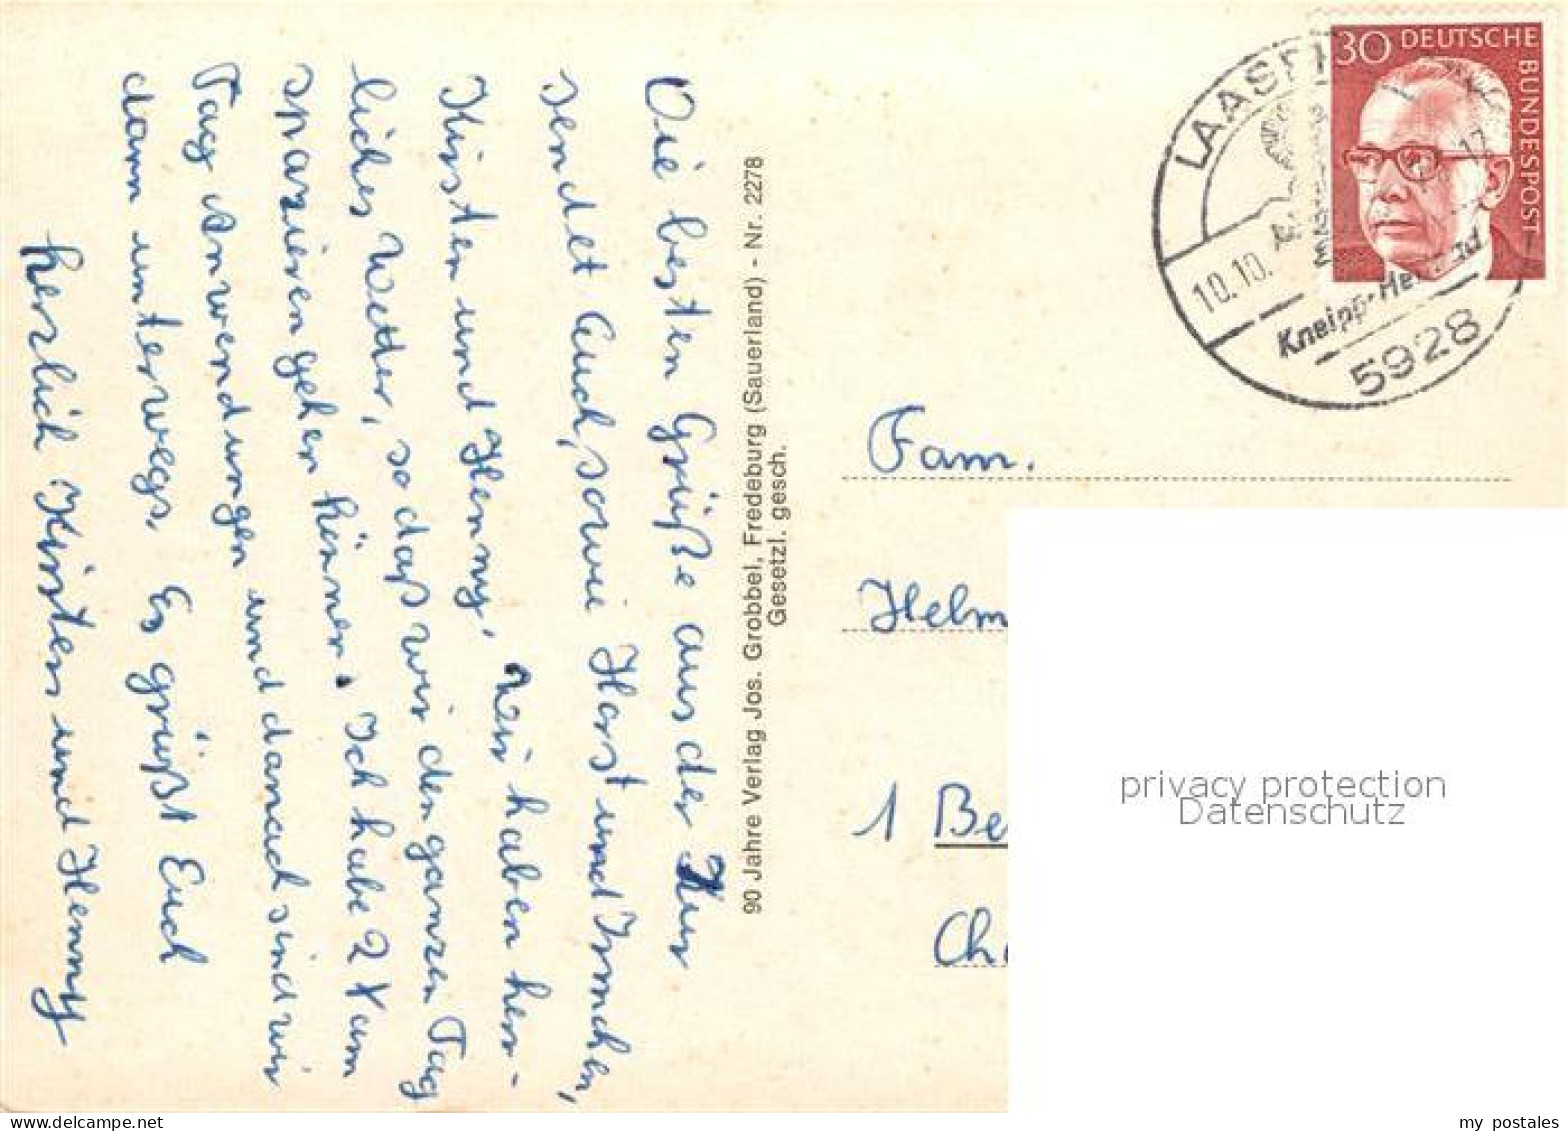 Die besten Grüße aus der Kur
sendet Euch, sowie Horst und Irmchen,
Kirsten und Henny. Wir haben herr-
liches Wetter, so daß wir den ganzen Tag
spazieren gehen können. Ich habe 2 x am
Tag Anwendungen und danach sind wir
dann unterwegs. Es grüßt Euch
herzlich Kirsten und Henny
90 Jahre Verlag Jos. Grobbel, Fredeburg (Sauerland) - Nr. 2278
Gesetzl. gesch.
30 DEUTSCHE
BUNDESPOST
LAASP
10.10.
17
Kneipp-He
5928
Fam.
Helm
1 Be
Ch
privacy protection
Datenschutz
my postales